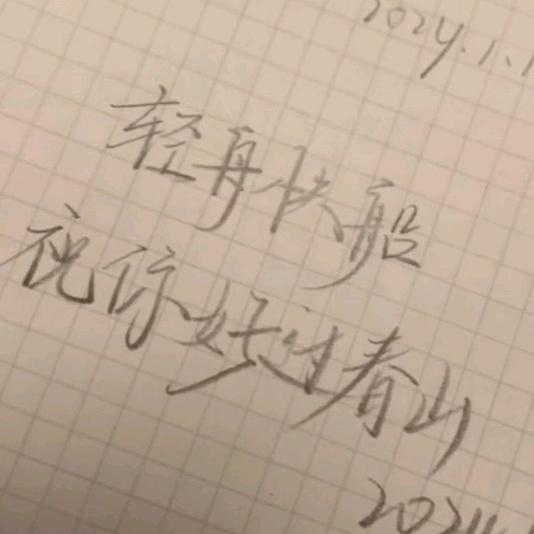 2024.1.1
轻舟快船
祝你好过春山
2024.